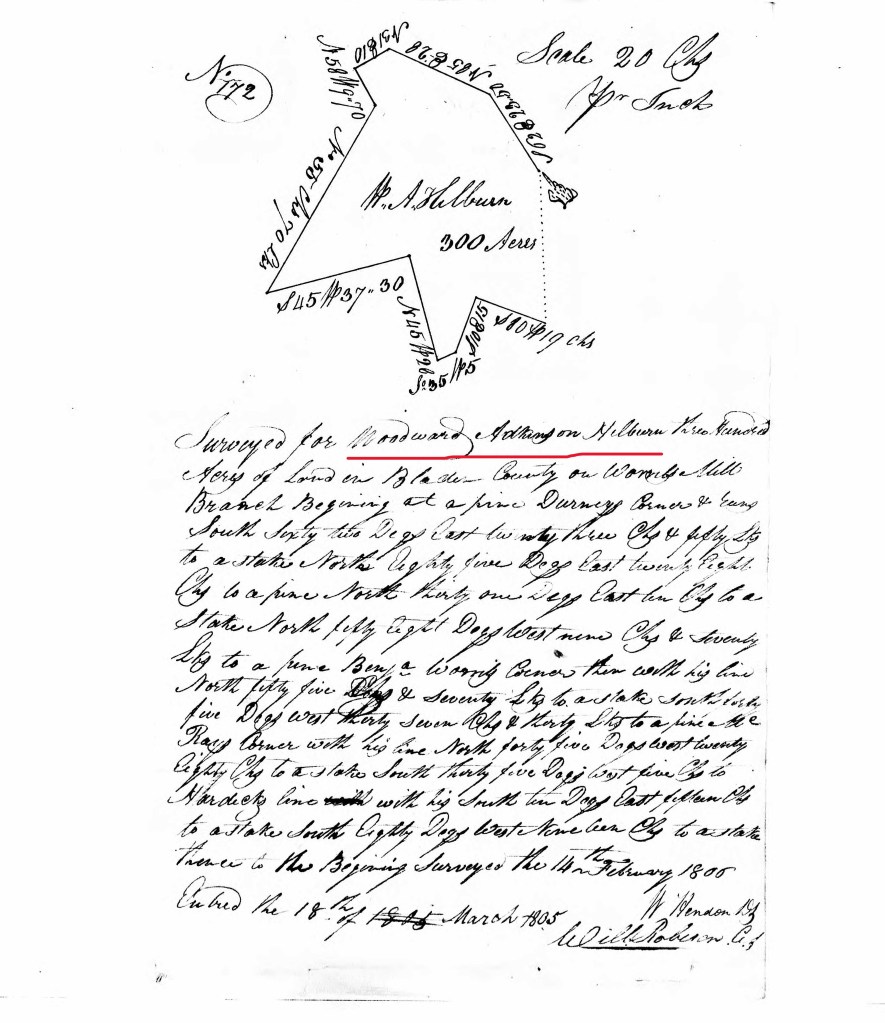 No. 172
Scale 20 Chs
Pr Inch
N 31 E 10
N 85 E 28
N 58 W 9"70
S 62 E 23.50
No 55 Chs 70 Lks
W. A. Hilburn
300 Acres
S 45 W 37"30
N 45 W 28
So 35 W 5
S 10 E 15
S 80 W 19 Chs
Surveyed for Woodward Adkinson Hilburn three Hundred
Acres of Land in Bladen County on Mill
Branch Begining at a pine Corner & runs
South Sixty two Degs East twenty three Chs & fifty Lks
to a stake North Eighty five Degs East twenty Eight
Chs to a pine North thirty one Degs East ten Chs to a
Stake North fifty Eight Degs West nine Chs & seventy
Lks to a pine Benja Corner then with his line
North fifty five Chs & seventy Lks to a stake South forty
five Degs west thirty seven Chs & thirty Lks to a pine Mc
Rays Corner with his line North forty five Degs west twenty
Eighty Chs to a stake South thirty five Degs West five Chs to
line with his South ten Degs East fifteen Chs
to a stake South Eighty Degs West Nineteen Chs to a stake
thence to the Begining Surveyed the 14th February 1806
Entred the 18th of 1805 March 1805
W Hendon DS
Will Robeson C.S